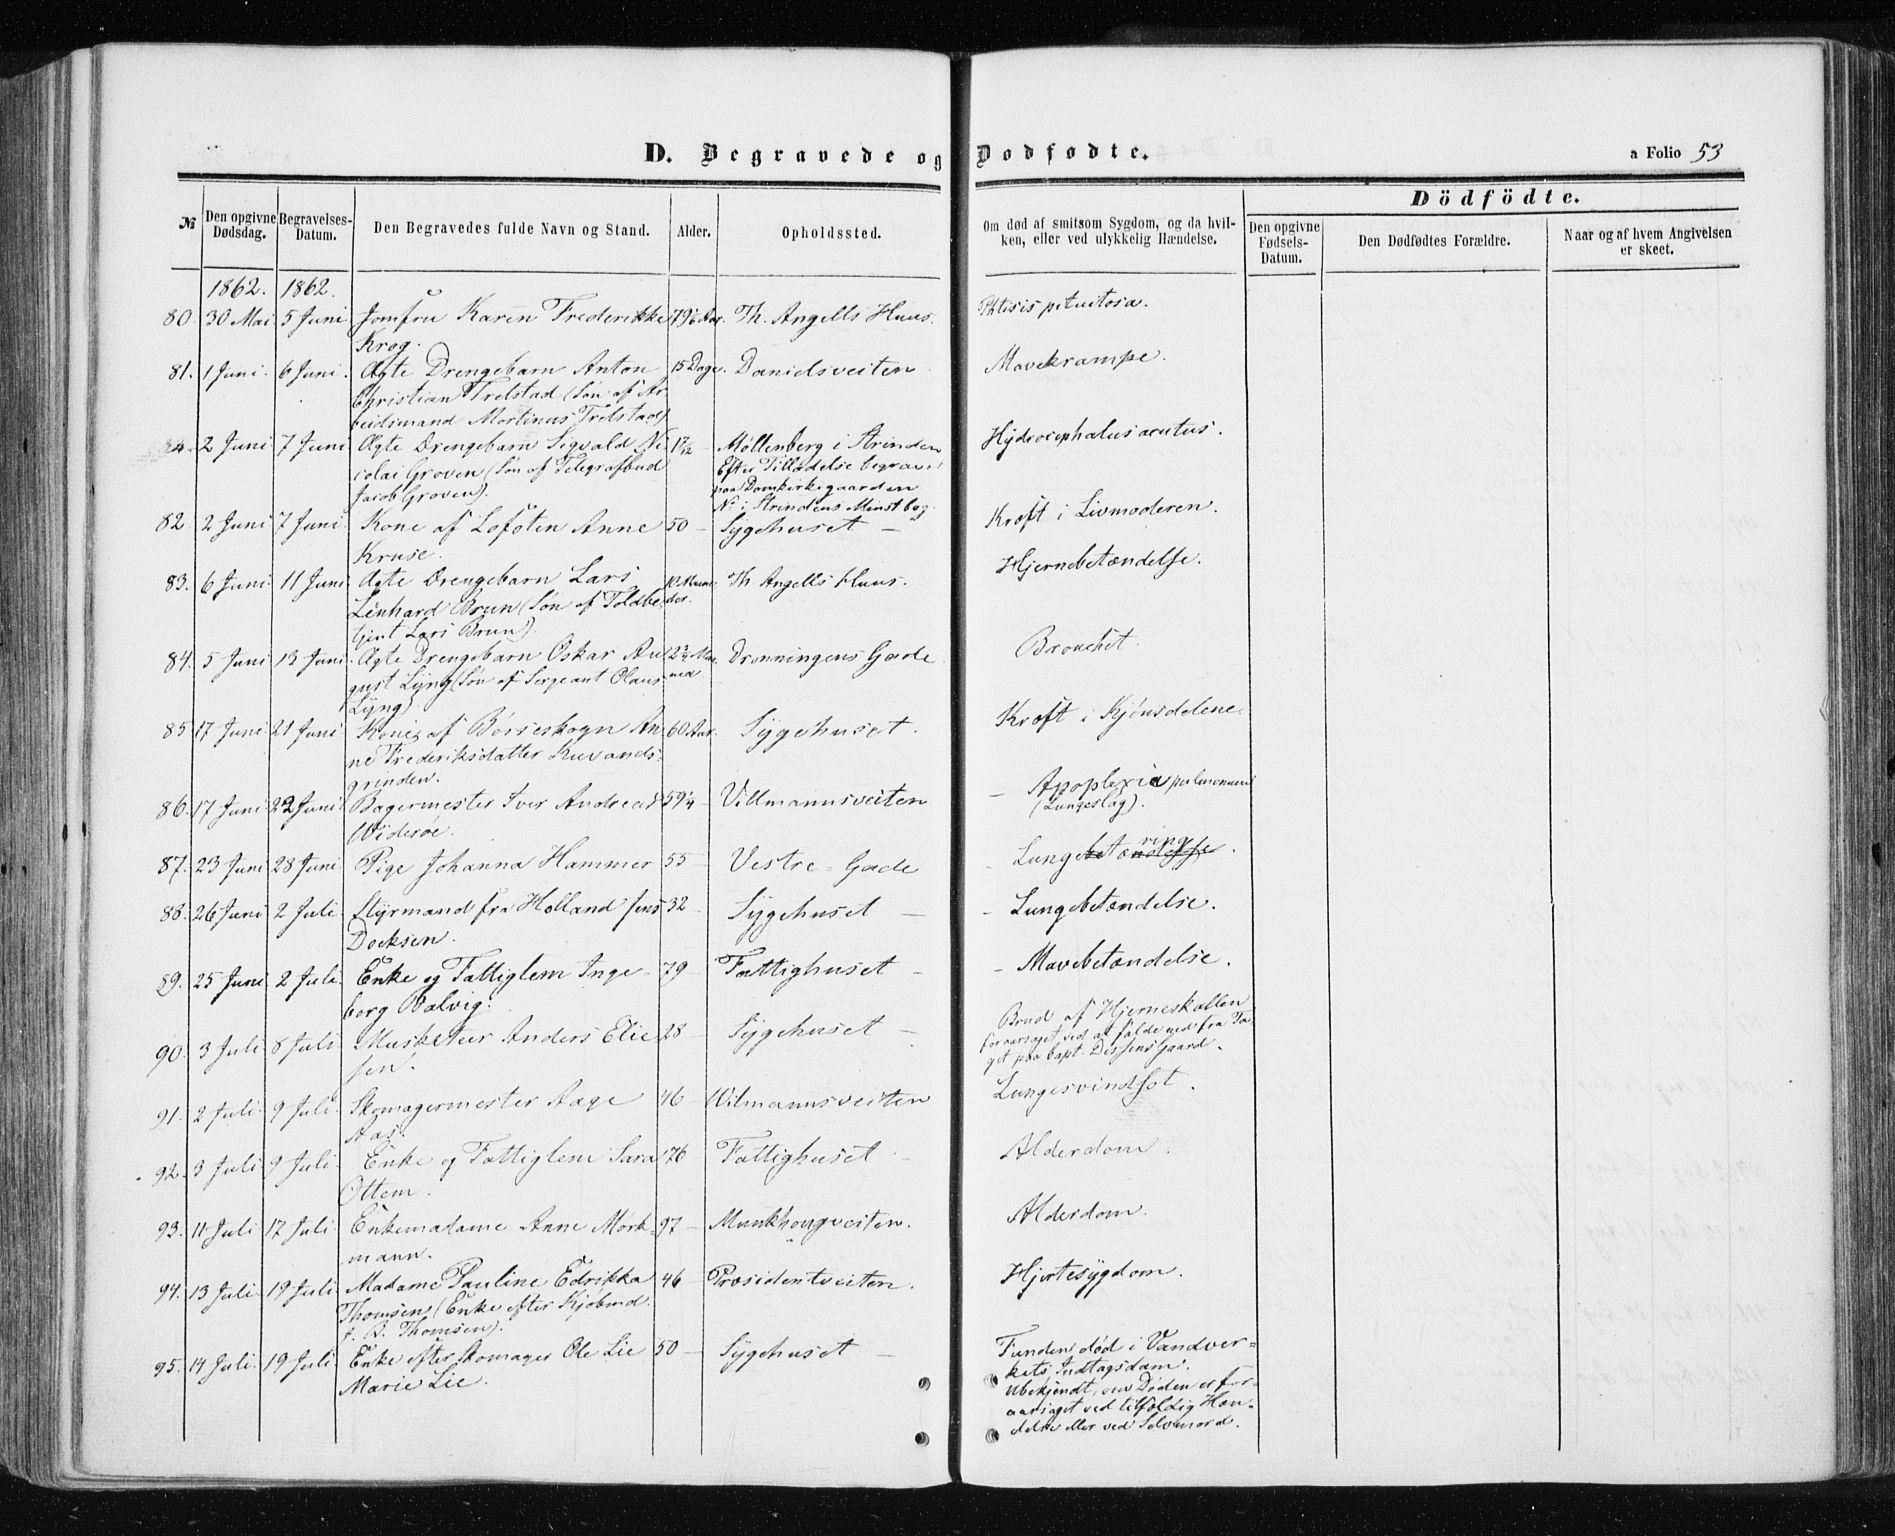 D. Begravede og Dødfødte.
a Folio 53
№
Den opgivne Dødsdag.
Begravelses-Datum.
Den Begravedes fulde Navn og Stand.
Alder.
Opholdssted.
Om død af smitsom Sygdom, og da hvilken, eller ved ulykkelig Hændelse.
Dödfödte.
Den opgivne Fødsels-Datum.
Den Dødfødtes Forældre.
Naar og af hvem Angivelsen er skeet.
1862. 1862.
80. 30 Mai 5 Juni Jomfru Karen Frederikke Th. Angells Huus. Phtisis pituitosa.
Krog.
81. 1 Juni. 6 Juni. Ægte Drengebarn Anton 15 Dage. Danielsveiten Mavekrampe.
Christian Trelstad (Søn af Ar
beidsmand Martinus Trelstad)
2 Juni 7 Juni Ægte Drengebarn Sigvald Ni Møllenberg i Strinden Hydrocephalus acutus.
colai Groven (Søn af Telegrafbud Efter Tilladelse begravet
Jacob Groven). paa Domkirkegaarden
No i Strindens Minstbog
82. 2 Juni 7 Juni Kone af Lofoten Anne 50 — Sygehuset — Kræft i Livmoderen.
Kruse.
83. 6 Juni. 11 Juni Ægte Drengebarn Lars 10 Maane Th. Angells Huus. Hjernebetændelse.
Linhard Brun (Søn af Toldbe- der.
tjent Lars Brun).
84. 5 Juni 13 Juni. Ægte Drengebarn Oskar Au Dronningens Gade Bronchit.
gust Lyng (Søn af Sergeant Olaus
Lyng)
85 17 Juni 21 Juni Kone af Børseskogn An- 60 Aar. Sygehuset. Kræft i Kjønsdelene.
ne Frederiksdatter Kuvands-
grinden.
86. 17 Juni 22 Juni Bagermester Iver Andreas 59¼ — Villmannsveiten — Apoplexia pulmonum
Widerøe. (Lungeslag).
ring
87. 23 Juni 28 Juni. Pige Johanna Hammer 55 — Vestre-Gade — Lungebetændelse.
88. 26 Juni 2 Juli Styrmand fra Holland Jens 32 — Sygehuset — — Lungebetændelse.
Docksen.
89. 25 Juni 2 Juli. Enke og Fattiglem Inge- 79 — Fattighuset — — Mavebetændelse.
borg Balvig.
90. 3 Juli 8 Juli Musketeer Anders Elie 28 — Sygehuset — Brud af Hjerneskallen
sen. foraarsaget ved at falde ned fra Ta-
get paa Capt. Gaard.
91. 2 Juli. 9 Juli. Skomagermester Aage 46 — Wilmannsveiten Lungesvindsot.
Aas.
92. 3 Juli 9 Juli. Enke og Fattiglem Sara 76 Fattighuset Alderdom.
Ottem.
93. 11 Juli 17 Juli. Enkemadame Anne Mørk- 97 — Munkhougveiten. Alderdom.
mann.
94. 13 Juli. 19 Juli. Madame Pauline Edrikka 46 — Præsidentveiten. Hjertesygdom.
Thomsen (Enke efter Kjøbmd.
J. B. Thomsen).
95. 14 Juli. 19 Juli Enke efter Skomager Ole Lie 50 — Sygehuset — Funden død i Vandver-
Marie Lie. kets Indtagsdam.
Ubekjendt, om Døden er for-
aarsaget ved tilfældig Hæn-
delse eller ved Selvmord.